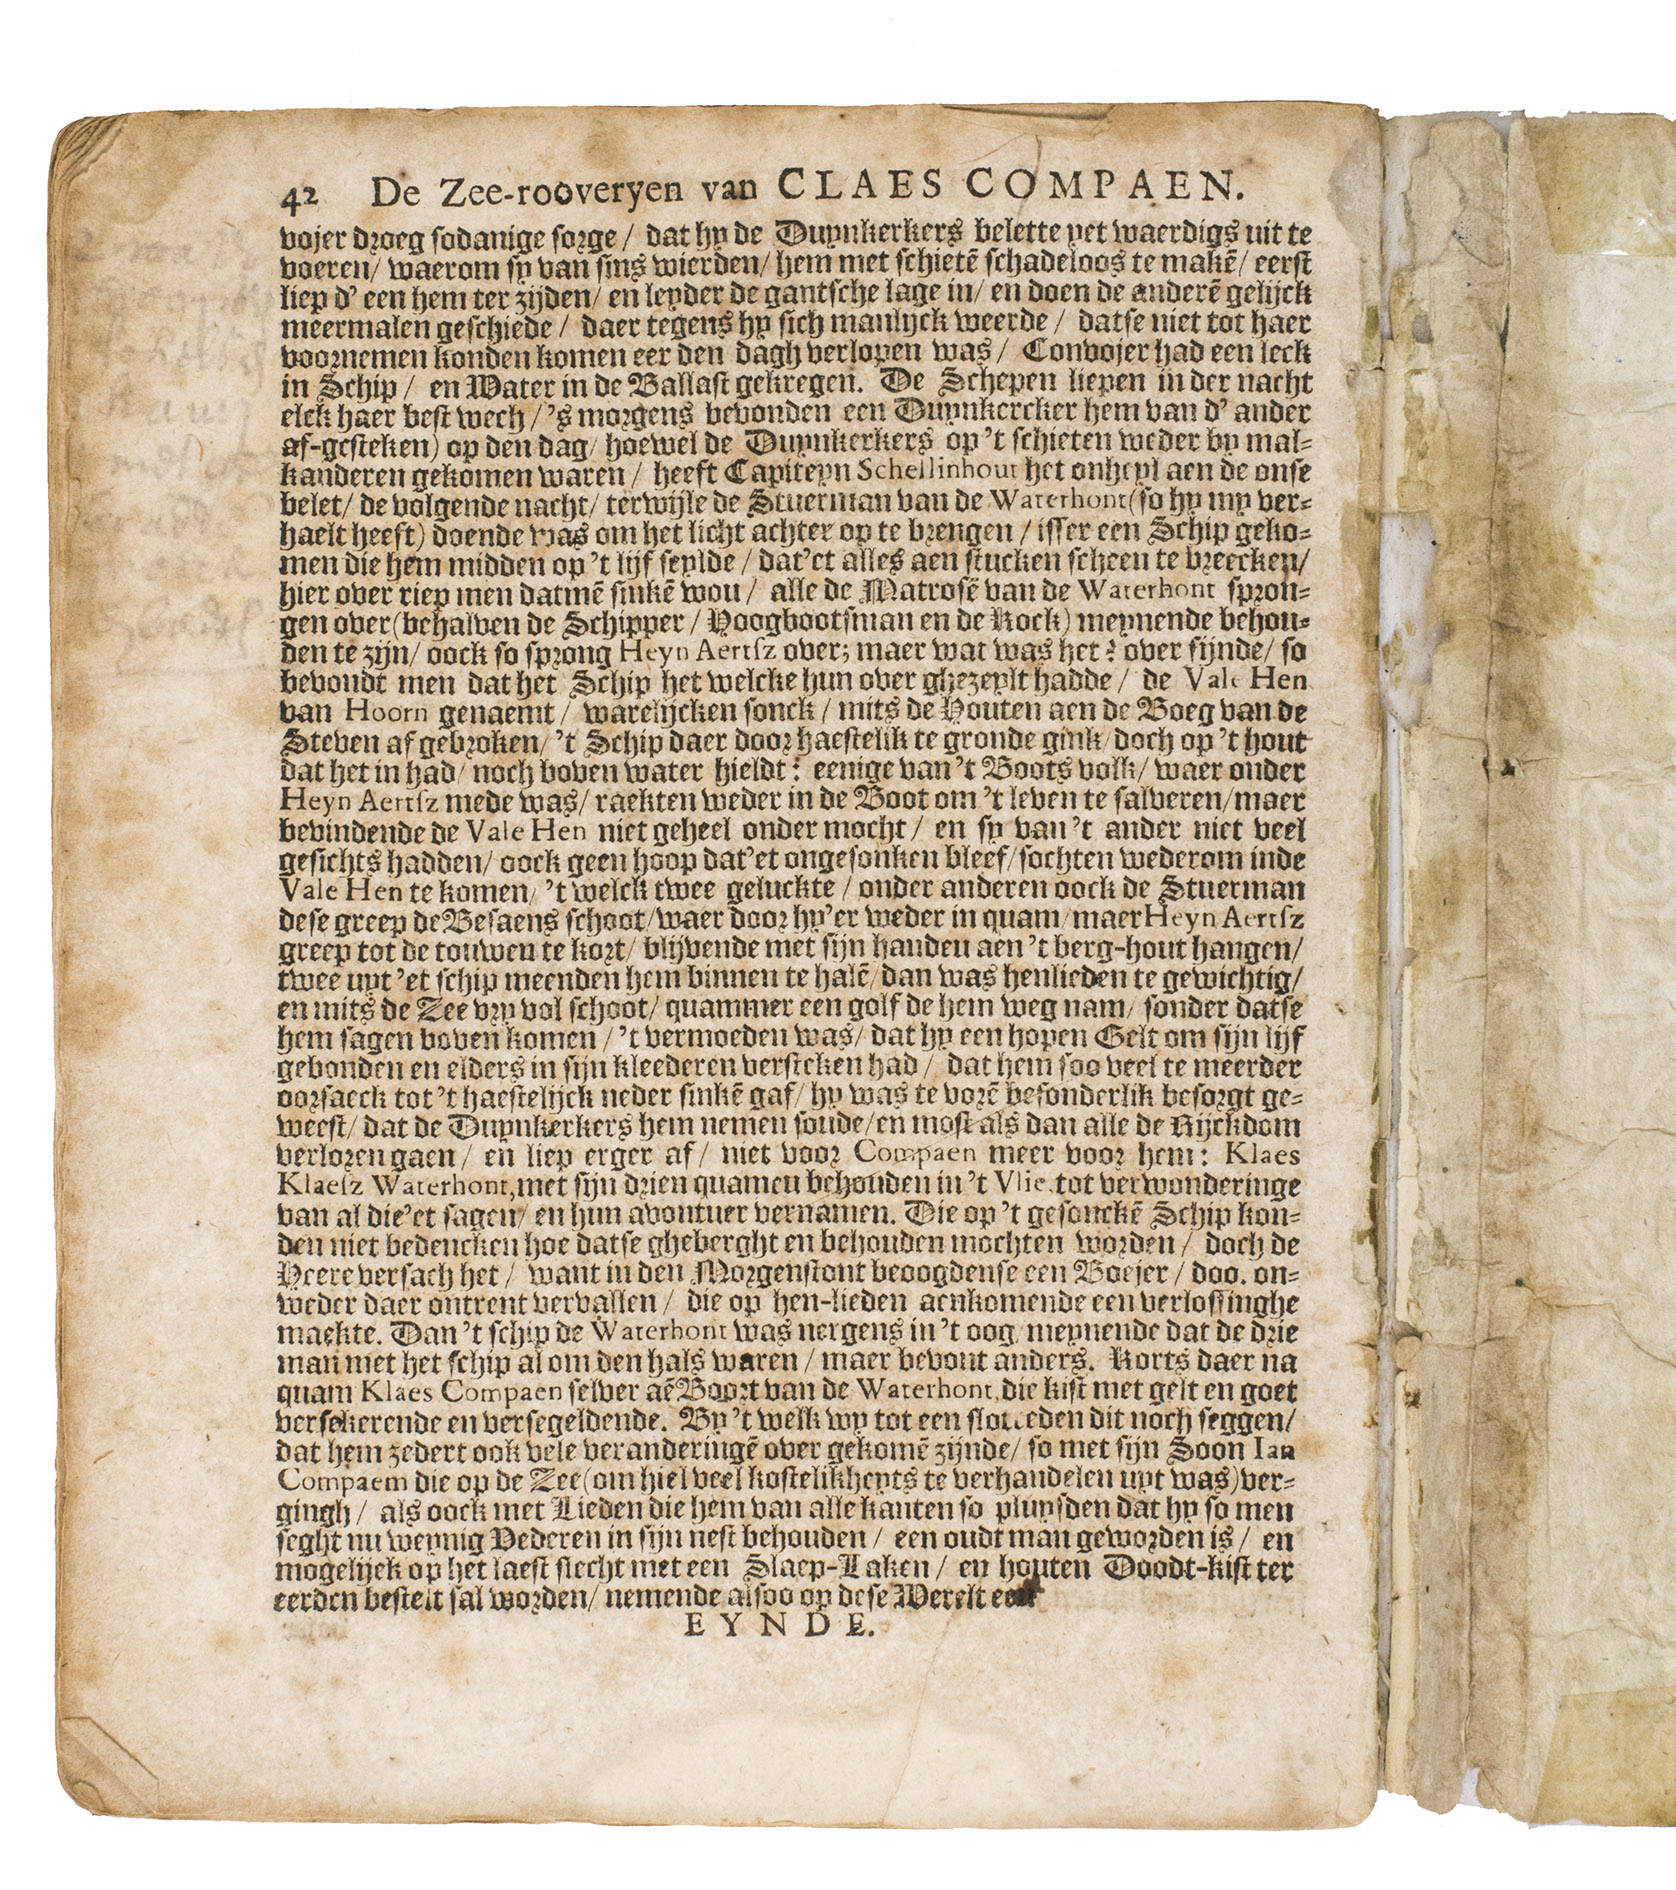 42 De Zee-rooveryen van CLAES COMPAEN.
vojer droeg sodanige sorge / dat hy de Duynkerkers belette yet waerdigs uit te
voeren / waerom sy van sins wierden / hem met schietē schadeloos te makē / eerst
liep d' een hem ter zijden / en leyder de gantsche lage in / en doen de anderē gelijck
meermalen geschiede / daer tegens hy sich manlijck weerde / datse niet tot haer
voornemen konden komen eer den dagh verlopen was / Convojer had een leck
in Schip / en Water in de Ballast gekregen. De Schepen liepen in der nacht
elck haer best wech / 's morgens bevonden een Duynkercker hem van d' ander
af-gesteken) op den dag / hoewel de Duynkerkers op 't schieten weder by mal-
kanderen gekomen waren / heeft Capiteyn Schellinhout het onheyl aen de onse
belet / de volgende nacht / terwijle de Stuerman van de Waterhont (so hy my ver-
haelt heeft) doende was om het licht achter op te brengen / isser een Schip geko-
men die hem midden op 't lijf seylde / dat'et alles aen stucken scheen te breecken /
hier over riep men datmē sinkē wou / alle de Matrosē van de Waterhont spron-
gen over (behalven de Schipper / Hoogbootsman en de Kock) meynende behou-
den te zijn / oock so sprong Heyn Aertsz over; maer wat was het? over sijnde / so
bevondt men dat het Schip het welcke hun over ghezeylt hadde / de Vale Hen
van Hoorn genaemt / warelijcken sonck / mits de Houten aen de Boeg van de
Steven af gebroken / 't Schip daer door haestelik te gronde gink / doch op 't hout
dat het in had / noch boven water hieldt: eenige van 't Boots volk / waer onder
Heyn Aertsz mede was / raekten weder in de Boot om 't leven te salveren / maer
bevindende de Vale Hen niet geheel onder mocht / en sy van 't ander niet veel
gesichts hadden / oock geen hoop dat'et ongesonken bleef / sochten wederom inde
Vale Hen te komen / 't welck twee geluckte / onder anderen oock de Stuerman
dese greep de Besaens schoot / waer door hy'er weder in quam / maer Heyn Aertsz
greep tot de touwen te kort / blijvende met sijn handen aen 't berg-hout hangen /
twee uyt 'et schip meenden hem binnen te halē / dan was henlieden te gewichtig /
en mits de Zee vry vol schoot / quammer een golf de hem weg nam / sonder datse
hem sagen boven komen / 't vermoeden was / dat hy een hopen Gelt om sijn lijf
gebonden en elders in sijn kleederen versteken had / dat hem soo veel te meerder
oorsaeck tot 't haestelijck neder sinkē gaf / hy was te vorē besonderlik besorgt ge-
weest / dat de Duynkerkers hem nemen soude / en most als dan alle de Rijckdom
verloren gaen / en liep erger af / niet voor Compaen meer voor hem: Klaes
Klaesz Waterhont, met sijn drien quamen behouden in 't Vlie, tot verwonderinge
van al die'et sagen / en hun avontuer vernamen. Die op 't gesonckē Schip kon-
den niet bedencken hoe datse gheberght en behouden mochten worden / doch de
Heere versach het / want in den Morgenstont beoogdense een Boejer / doo. on-
weder daer ontrent vervallen / die op hen-lieden aenkomende een verlossinghe
maekte. Dan 't schip de Waterhont was nergens in 't oog, meynende dat de drie
man met het schip al om den hals waren / maer bevont anders. Korts daer na
quam Klaes Compaen selver aē Boort van de Waterhont, die kist met gelt en goet
versekerende en versegeldende. By 't welk wy tot een slot reden dit noch seggen /
dat hem zedert ook vele veranderingē over gekomē zijnde / so met sijn Soon Ian
Compaem die op de Zee (om hiel veel kostelikheyts te verhandelen uyt was) ver-
gingh / als oock met Lieden die hem van alle kanten so pluysden dat hy so men
seght nu weynig Vederen in sijn nest behouden / een oudt man geworden is / en
mogelijck op het laest slecht met een Slaep-Laken / en houten Doodt-kist ter
eerden bestelt sal worden / nemende alsoo op dese Werelt een
EYNDE.